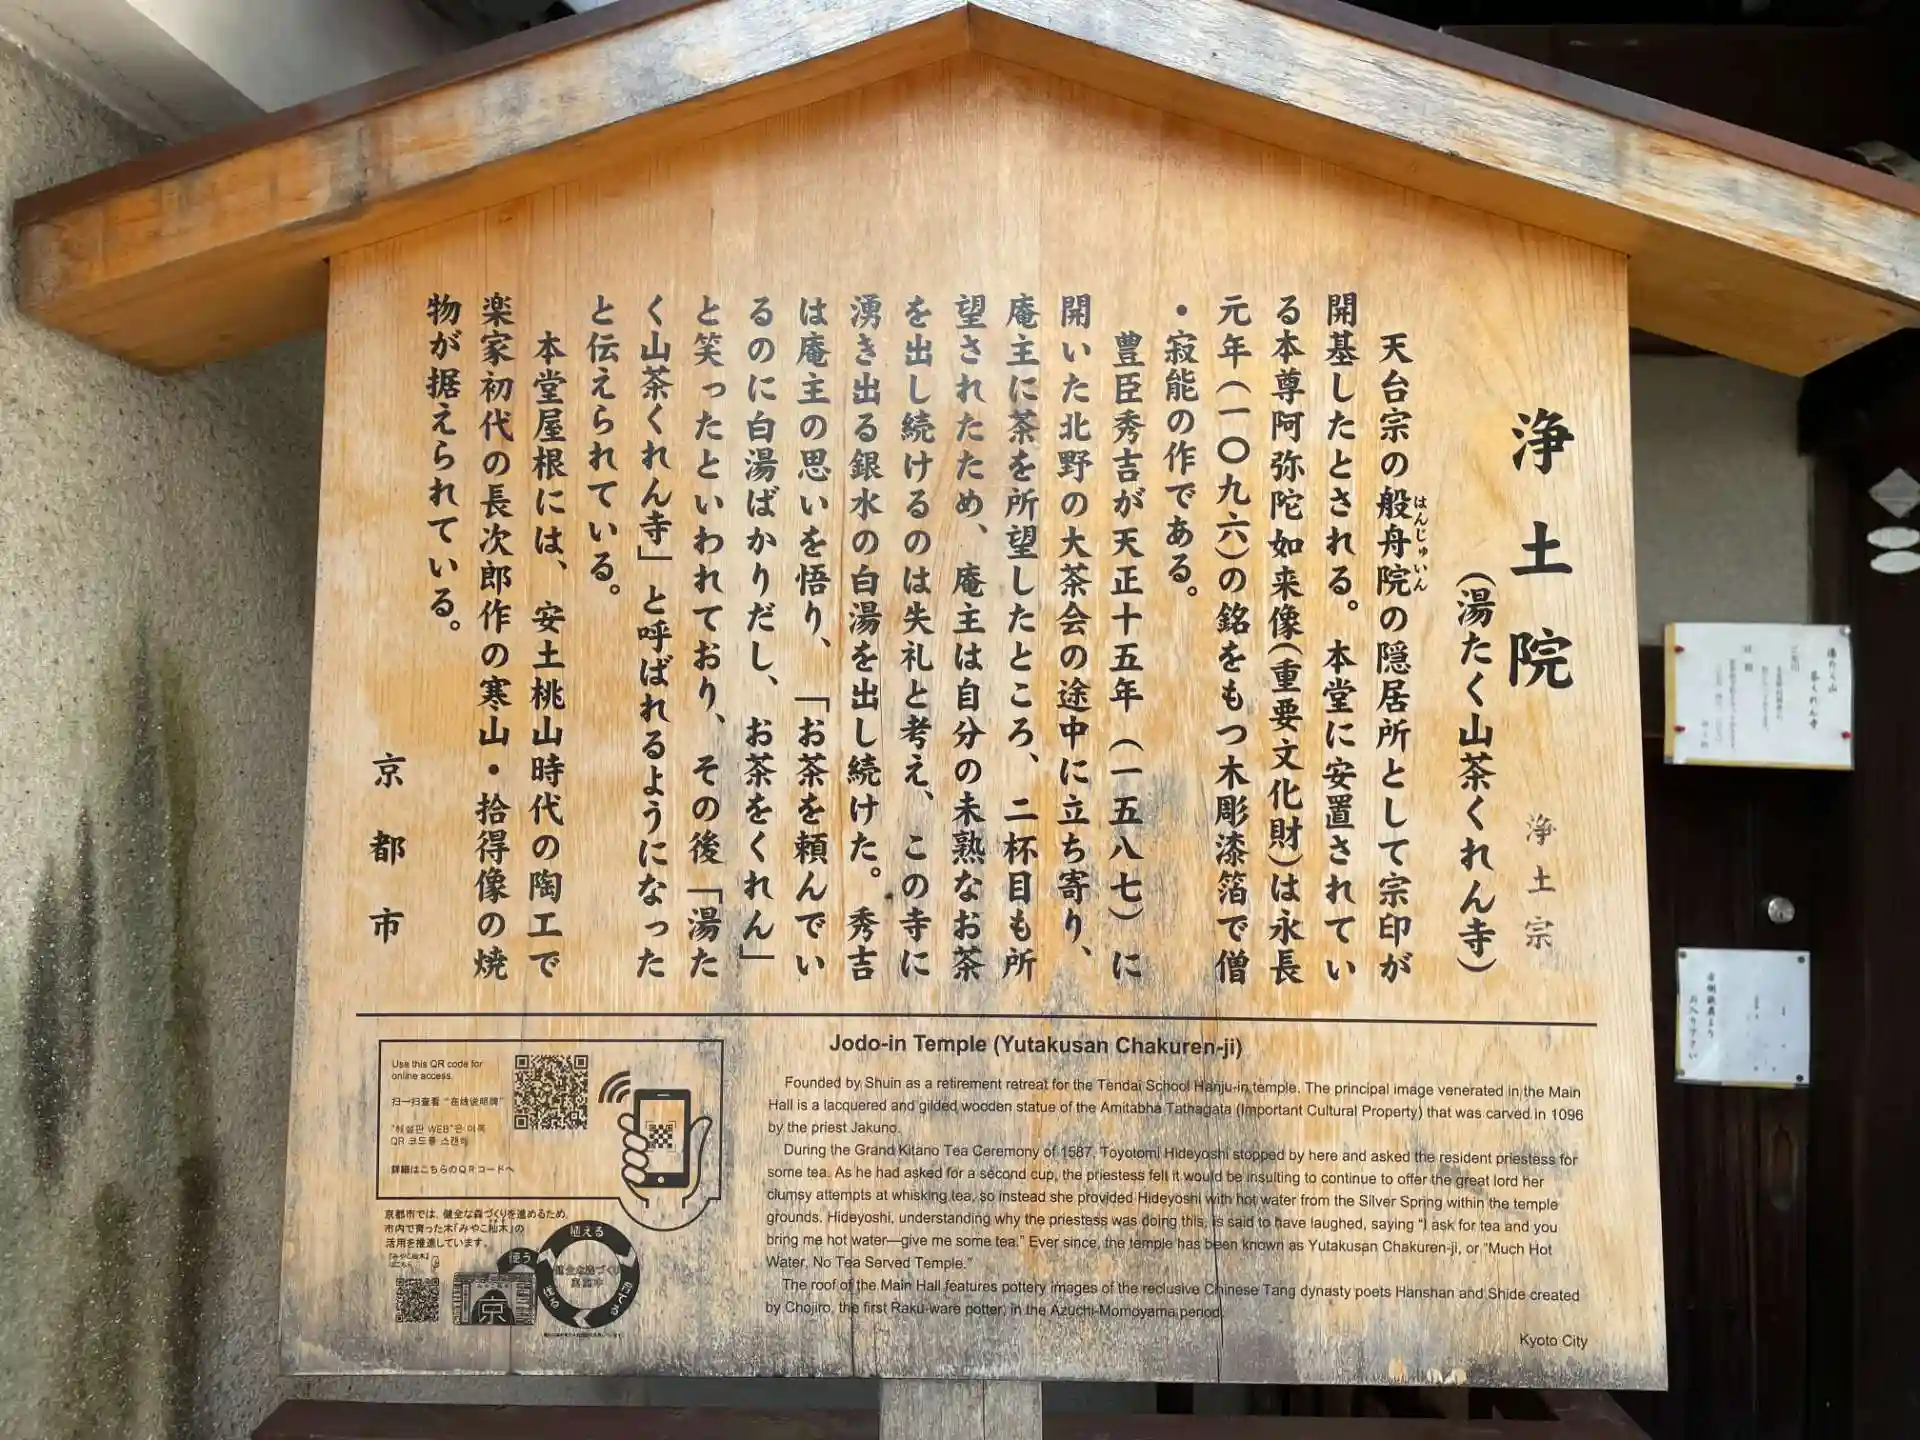 浄土院
浄土宗
(湯たく山茶くれん寺)
天台宗の般舟院の隠居所として宗印が
はんじゅいん
開基したとされる。本堂に安置されてい
る本尊阿弥陀如来像(重要文化財)は永長
元年(一〇九六)の銘をもつ木彫漆箔で僧
・寂能の作である。
豊臣秀吉が天正十五年(一五八七)に
開いた北野の大茶会の途中に立ち寄り、
庵主に茶を所望したところ、二杯目も所
望されたため、庵主は自分の未熟なお茶
を出し続けるのは失礼と考え、この寺に
湧き出る銀水の白湯を出し続けた。秀吉
は庵主の思いを悟り、「お茶を頼んでい
るのに白湯ばかりだし、お茶をくれん」
と笑ったといわれており、その後「湯た
く山茶くれん寺」と呼ばれるようになった
と伝えられている。
本堂屋根には、安土桃山時代の陶工で
楽家初代の長次郎作の寒山・拾得像の焼
物が据えられている。
京都市
Jodo-in Temple (Yutakusan Chakuren-ji)
Founded by Shuin as a retirement retreat for the Tendai School Hanju-in temple. The principal image venerated in the Main
Hall is a lacquered and gilded wooden statue of the Amitabha Tathagata (Important Cultural Property) that was carved in 1096
by the priest Jakuno.
During the Grand Kitano Tea Ceremony of 1587, Toyotomi Hideyoshi stopped by here and asked the resident priestess for
some tea. As he had asked for a second cup, the priestess felt it would be insulting to continue to offer the great lord her
clumsy attempts at whisking tea, so instead she provided Hideyoshi with hot water from the Silver Spring within the temple
grounds. Hideyoshi, understanding why the priestess was doing this, is said to have laughed, saying "I ask for tea and you
bring me hot water—give me some tea." Ever since, the temple has been known as Yutakusan Chakuren-ji, or "Much Hot
Water, No Tea Served Temple."
The roof of the Main Hall features pottery images of the reclusive Chinese Tang dynasty poets Hanshan and Shide created
by Chojiro, the first Raku-ware potter, in the Azuchi-Momoyama period.
Kyoto City
Use this QR code for
online access.
扫一扫查看“在线说明牌”
"해설판 WEB"은 이쪽
QR 코드를 스캔해
詳細はこちらのQRコードへ
京都市では、健全な森づくりを進めるため、
市内で育った木「みやこ杣木」の
活用を推進しています。
植える
使う
京
湯たく山
茶くれん寺